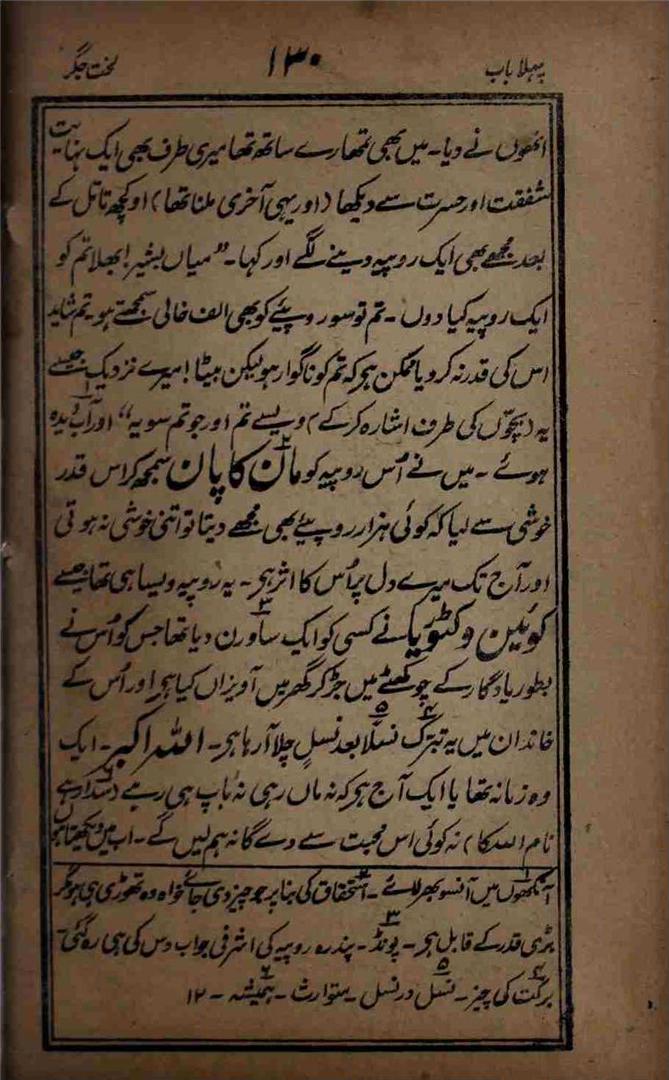 پہلا باب ۱۳۰ لخت جگر
انھوں نے دیا۔ میں بھی تمھارے ساتھ تھا میری طرف بھی ایک نہایت
شفقت اور حسرت سے دیکھا (اور یہی آخری ملنا تھا) او کچھ تامل کے
بعد مجھے بھی ایک روپیہ دینے لگے اور کہا۔ "میاں بشیر! بھلا تم کو
ایک روپیہ کیا دوں۔ تم تو سو روپئے کو بھی الف خالی سمجھتے ہو۔ تم شاید
اس کی قدر نہ کرو یا ممکن ہو کہ تم کو ناگوار ہو لیکن بیٹا! میرے نزدیک جیسے
یہ (بچوں کی طرف اشارہ کر کے) ویسے تم اور جو تم سو یہ" اور آب دیدہ
ہوئے۔ میں نے اُس روپیہ کو مان کا پان سمجھ کر اس قدر
خوشی سے لیا کہ کوئی ہزار روپیئے بھی مجھے دیتا تو اتنی خوشی نہ ہوتی
اور آج تک میرے دل پر اُس کا اثر ہی۔ یہ روپیہ ویسا ہی تھا جیسے
کوئین وکٹوریا نے کسی کو ایک ساورن دیا تھا جس کو اُس نے
بطور یادگار کے چوکھٹے میں جڑ کر گھر میں آویزاں کیا ہی اور اُس کے
خاندان میں یہ تبرک نسلاً بعد نسلٍ چلا آ رہا ہی۔ اللہ اکبر۔ ایک
وہ زمانہ تھا یا ایک آج ہی کہ نہ ماں رہی نہ باپ ہی رہے (سدا رہے
نام اللہ کا) نہ کوئی اس محبت سے دے گا نہ ہم لیں گے۔ اب میں دیکھتا ہوں
۱ آنکھوں میں آنسو بھر لائے۔ ۲ استحقاق کی بنا پر جو چیز دی جائے خواہ وہ تھوڑی ہی ہو مگر
بڑی قدر کے قابل ہی۔ ۳ پونڈ۔ پندرہ روپیہ کی اشرفی جو اب دس کی ہی رہ گئی۔
۴ برکت کی چیز۔ ۵ نسل در نسل۔ متوارث۔ ۶ ہمیشہ۔ ۱۲